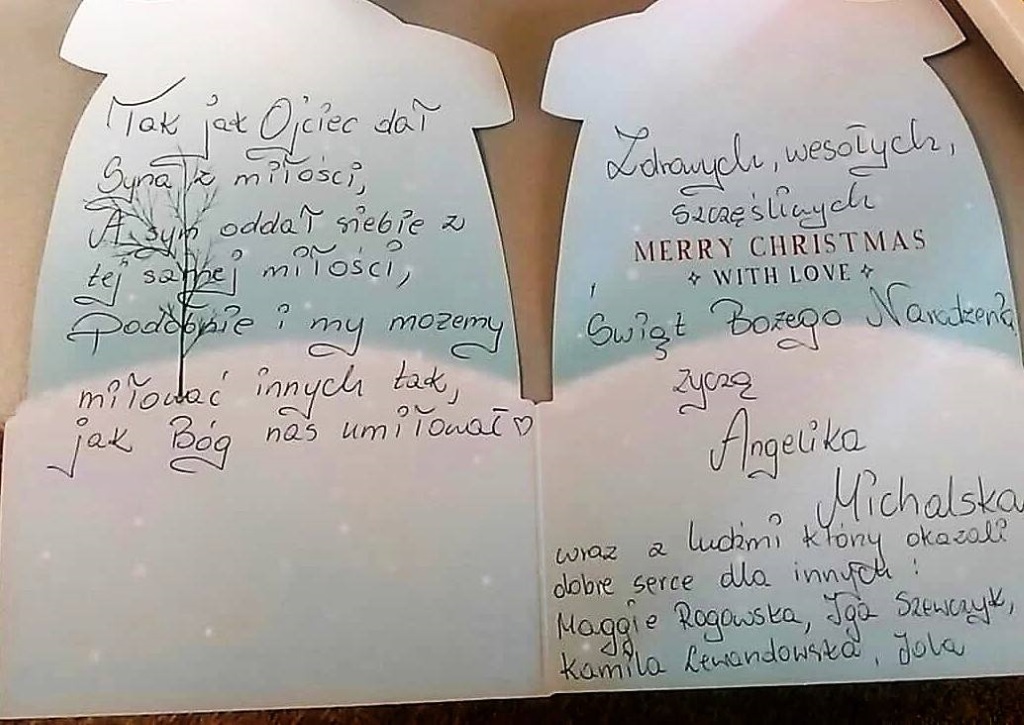 Tak jak Ojciec dał
Syna z miłości,
A syn oddał siebie z
tej samej miłości,
Podobnie i my możemy
miłować innych tak,
jak Bóg nas umiłował♡
Zdrowych, wesołych,
szczęśliwych
MERRY CHRISTMAS
✧ WITH LOVE ✧
Świąt Bożego Narodzenia
życzą
Angelika
Michalska
wraz z ludźmi którzy okazali
dobre serce dla innych:
Maggie Rogowska, Iga Szewczyk,
Kamila Lewandowska, Jola